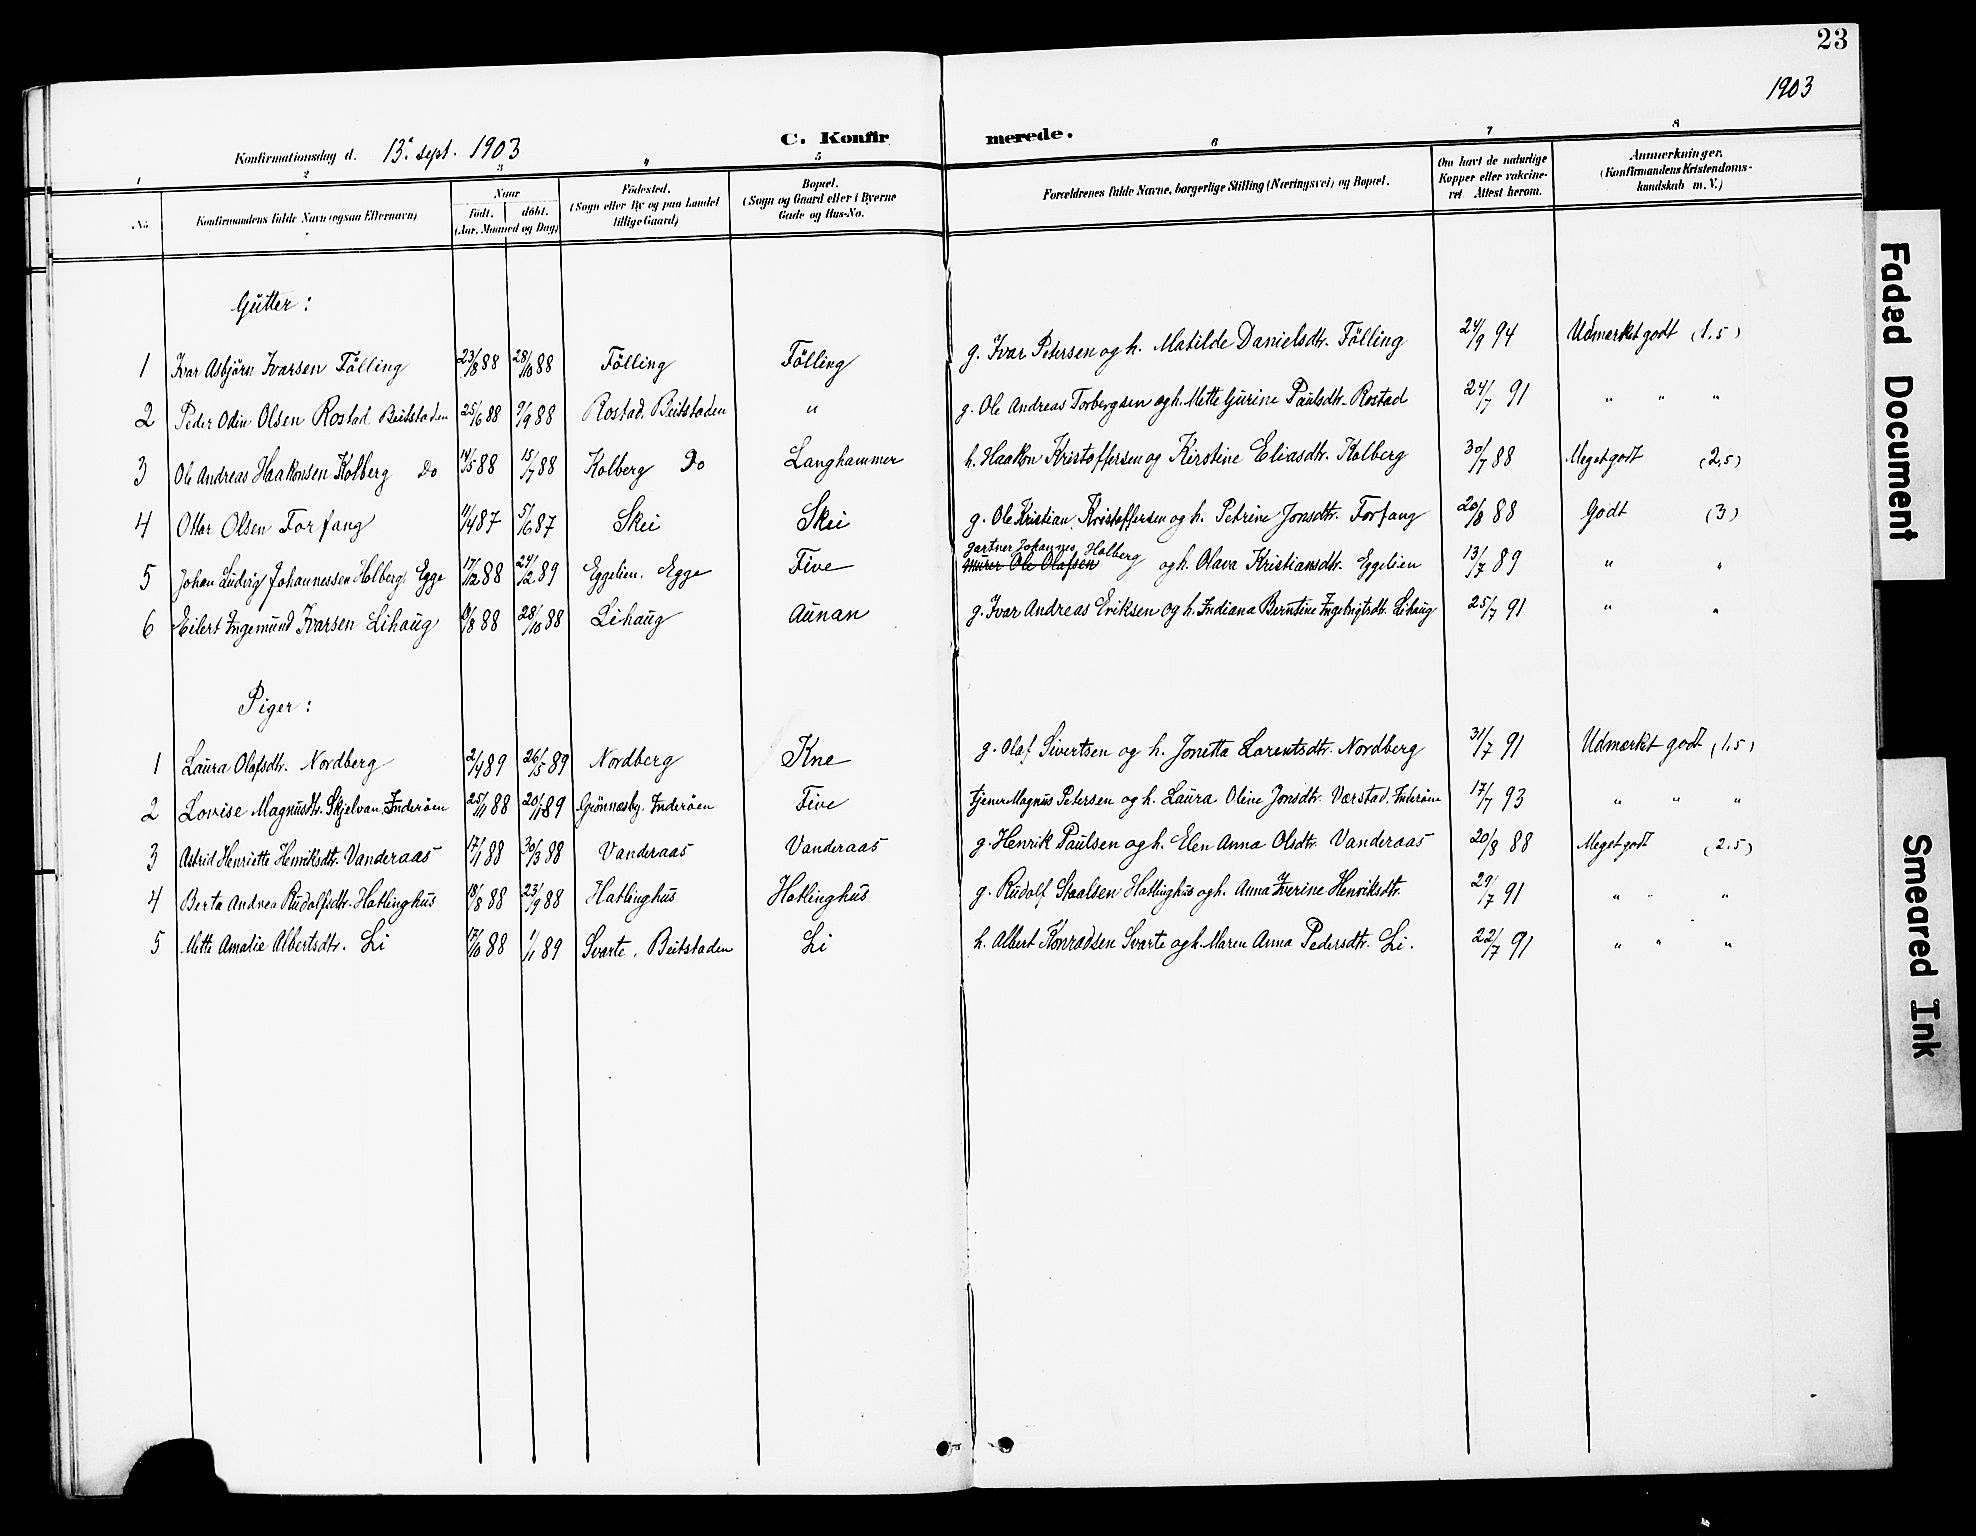 23
1903
C. Konfirmerede.
Konfirmationsdag d. 13. sept. 1903
1 2 3 4 5 6 7 8
No. Konfirmandens fulde Navn (ogsaa Efternavn) Naar født. døbt. (Aar, Maaned og Dag) Fødested. (Sogn eller By og paa Landet tillige Gaard) Bopæl. (Sogn og Gaard eller i Byerne Gade og Hus-No. Forældrenes fulde Navne, borgerlige Stilling (Næringsvei) og Bopæl. Om havt de naturlige Kopper eller vakcineret. Attest herom. Anmærkninger. (Konfirmandens Kristendomskundskab m. V.)
Gutter:
1 Ivar Asbjörn Ivarsen Fölling 23/8 88 28/10 88 Fölling Fölling g. Ivar Petersen og h. Matilde Danielsdtr. Fölling 24/9 94 Udmerket godt (1,5)
2 Peder Odin Olsen Rostad Beitstaden 25/6 88 9/9 88 Rostad. Beitstaden " g. Ole Andreas Torbergsen og h. Mette Gurine Paulsdtr. Rostad 24/7 91 " " "
3 Ole Andreas Haakonsen Kolberg Do 14/5 88 15/7 88 Kolberg Do Langhammer h. Haakon Kristoffersen og Kirstine Eliasdtr. Kolberg 30/7 88 Meget godt (2,5)
4 Ottar Olsen Forfang 11/4 87 5/6 87 Skei Skei g. Ole Kristian Kristoffersen og h. Petrine Jonsdtr. Forfang 20/8 88 Godt (3)
5 Johan Ludvig Johannessen Holberg Egge 17/12 88 24/2 89 Eggelien. Egge Five Murer Ole Olafsen gartner Johannes Holberg og h. Olava Kristiansdtr. Eggelien 13/7 89 " "
6 Eilert Ingemund Ivarsen Lihaug /8 88 28/10 88 Lihaug Aunan g. Ivar Andreas Eriksen og h. Indiana Berntine Ingebrigtsdtr. Lihaug 25/7 91 " "
Piger:
1 Laura Olafsdtr. Nordberg 2/4 89 26/5 89 Nordberg Kne g. Olaf Sivertsen og h. Jonetta Larentsdtr. Nordberg 31/7 91 Udmærkt godt (1,5)
2 Lovise Magnusdtr. Skjelvan. Inderöen 25/11 88 20/1 89 Grönnesby. Inderöen Five tjener Magnus Petersen og h. Laura Oline Jonsdtr. Værstad. Inderöen 17/7 93 " " "
3 Astrid Henriette Henriksdtr. Vanderaas 17/1 88 30/3 88 Vanderaas Vanderaas g. Henrik Paulsen og h. Elen Anna Olsdtr. Vanderaas 20/8 88 Meget godt (2.5)
4 Berta Andrea Rudolfsdtr. Hatlinghus 18/8 88 23/9 88 Hatlinghus Hatlinghus g. Rudolf Staalsen Hatlinghus og h. Anna Iverine Henriksdtr. 29/7 91 " " "
5 Mette Amalie Albertsdtr. Li 17/10 88 1/1 89 Svarte. Beitstaden Li h. Albert Konradsen Svarte og h. Maren Anna Pedersdtr. Li. 22/7 91 " " "
Faded Document
Smeared Ink